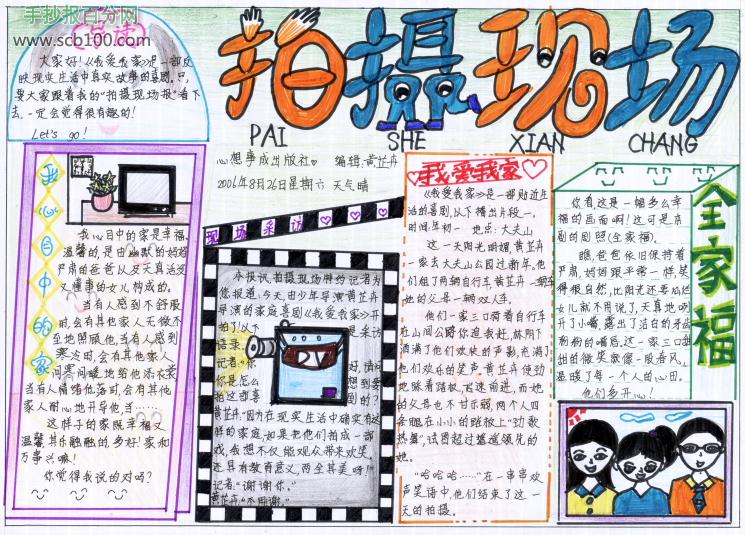 手抄报百分网
www.sco100.com
拍摄现场
PAI SHE XIAN CHANG
大家好!《我爱我家》是一部反
映现实生活中真实故事的喜剧。只
要大家跟着我的“拍摄现场报”看下
去,一定会觉得很有趣的!
Let's go!
心想事成出版社 编辑:黄芷卉
2006年8月26日星期六 天气晴
我心目中的家
我心目中的家是幸福、
温馨的,是由幽默的妈妈
严肃的爸爸以及天真活泼
又懂事的女儿构成的。
当有人感到不舒服
时,会有其他家人无微不
至地照顾他;当有人感到
寒冷时,会有其他家人
问寒问暖,地给他添衣裳
当有人情绪低落时,会有其他
家人耐心地开导他当……
这样子的家既幸福又
温馨,其乐融融的,多好!家和
万事兴嘛!
你觉得我说的对吗?
现场采访
本报讯:拍摄现场特约记者为
您报道:今天,由少年导演黄芷卉
导演的家庭喜剧《我爱我家》开
拍了!以下是采访
语录。
记者:“你好,请问
你是怎么想到要
拍这部喜剧的?”
黄芷卉:“因为在现实生活中确实有这
样的家庭,如果把他们拍成一部
戏,我想不仅能观众带来欢笑,
还具有教育意义,两全其美呀!”
记者:“谢谢你。”
黄芷卉:“不用谢。”
我爱我家
《我爱我家》是一部贴近生
活的喜剧,以下播出片段一。
时间:年初一 地点:大夫山
这一天阳光明媚,黄芷卉
一家去大夫山公园过新年。他
们租了两辆自行车,黄芷卉一辆,
她的父母一辆双人车。
他们一家三口骑着自行车
在山间公路你追我赶,林阴下
洒满了他们欢快的身影,充满了
他们欢乐的笑声。黄芷卉使劲
地踩着踏板,飞速前进,而她
的父母也不甘示弱,两个人四
条腿在小小的踏板上“劲歌
热舞”,试图超过遥遥领先的
她。
“哈哈哈……”在一串串欢
声笑语中,他们结束了这一
天的拍摄。
全家福
你看,这是一幅多么幸
福的画面啊!这可是本
剧的剧照(全家福)。
瞧,爸爸依旧保持着
严肃,妈妈跟平常一样,笑
得很自然,比阳光还要灿烂
女儿就不用说了,天真地咧
开了小嘴,露出了洁白的牙齿
的微笑就像一股春风,
温暖了每一个人的心田。
他们多开心!